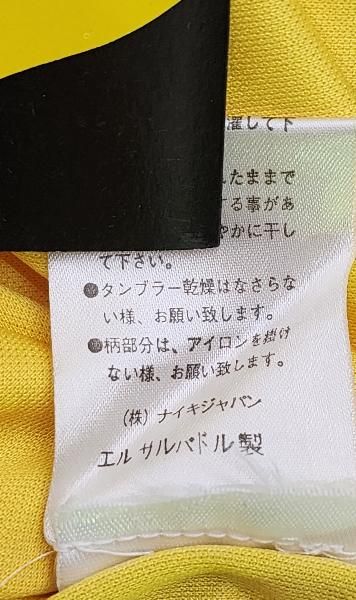 濯して下
たままで
する事があ
やかに干し
て下さい。
●タンブラー乾燥はなさらな
い様、お願い致します。
●柄部分は、アイロンを掛け
ない様、お願い致します。
(株) ナイキジャパン
エル サルバドル製